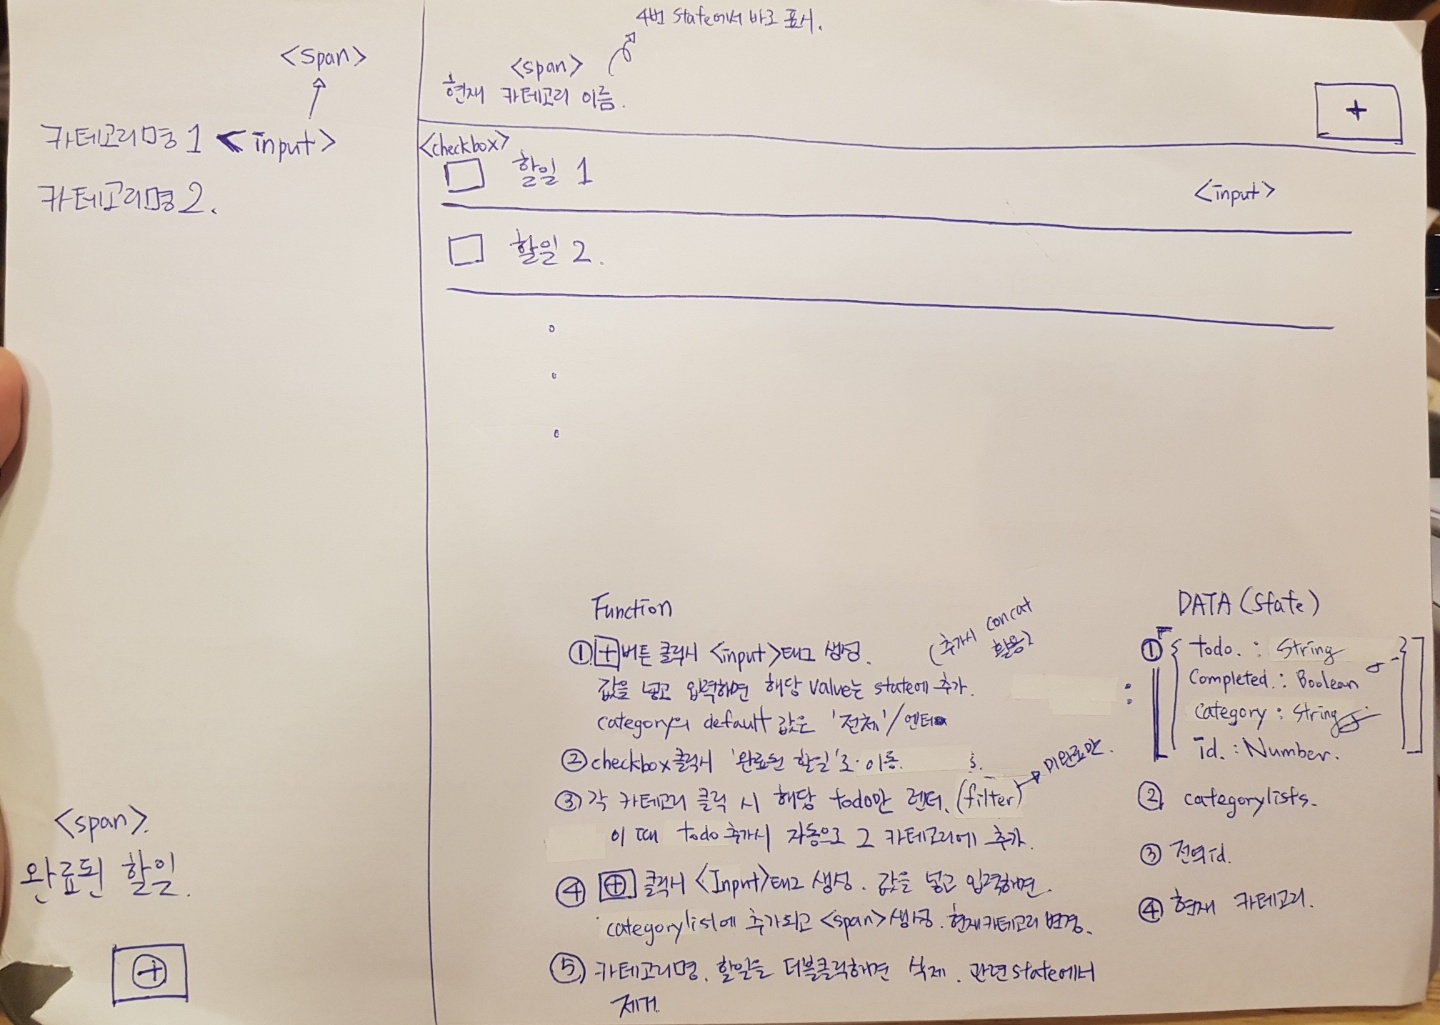 <span>
카테고리명 1 <input>
카테고리명 2.
<span>.
완료된 할일.
+
4번 state에서 바로 표시.
<span>
현재 카테고리 이름.
+
<checkbox>
할일 1
<input>
할일 2.
Function
① + 버튼 클릭시 <input>태그 생성.
(추가시 concat
활용)
값을 넣고 입력하면 해당 value는 state에 추가.
category의 default 값은 '전체'/엔터
② checkbox 클릭시 '완료된 할일'로 이동.
③ 각 카테고리 클릭 시 해당 todo만 렌더. (filter)
미완료만.
이 때 todo 추가시 자동으로 그 카테고리에 추가.
④ + 클릭시 <Input>태그 생성. 값을 넣고 입력하면.
categorylist에 추가되고 <span>생성. 현재카테고리 변경.
⑤ 카테고리명, 할일을 더블클릭하면 삭제. 관련state에서
제거.
DATA (state)
① [ { todo. : String
Completed. : Boolean
category : String
id. : Number. } ]
② categorylists.
③ 전역id.
④ 현재 카테고리.